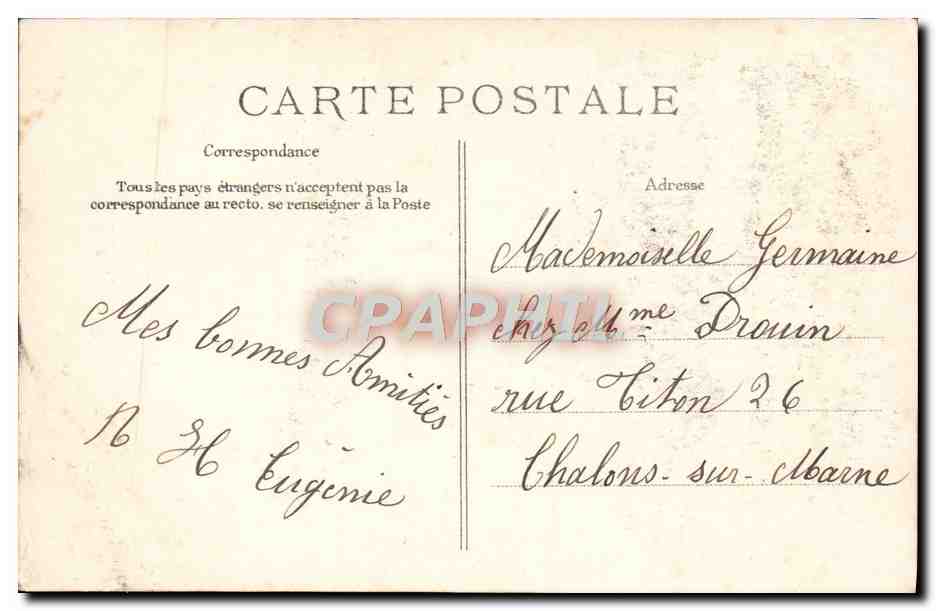 CARTE POSTALE
Correspondance
Tous les pays étrangers n'acceptent pas la
correspondance au recto. se renseigner à la Poste
Mes bonnes Amitiés
N H Eugénie
Adresse
Mademoiselle Germaine
Chez Mme Drouin
rue Titon 26
Chalons-sur-Marne
CPAPHIL